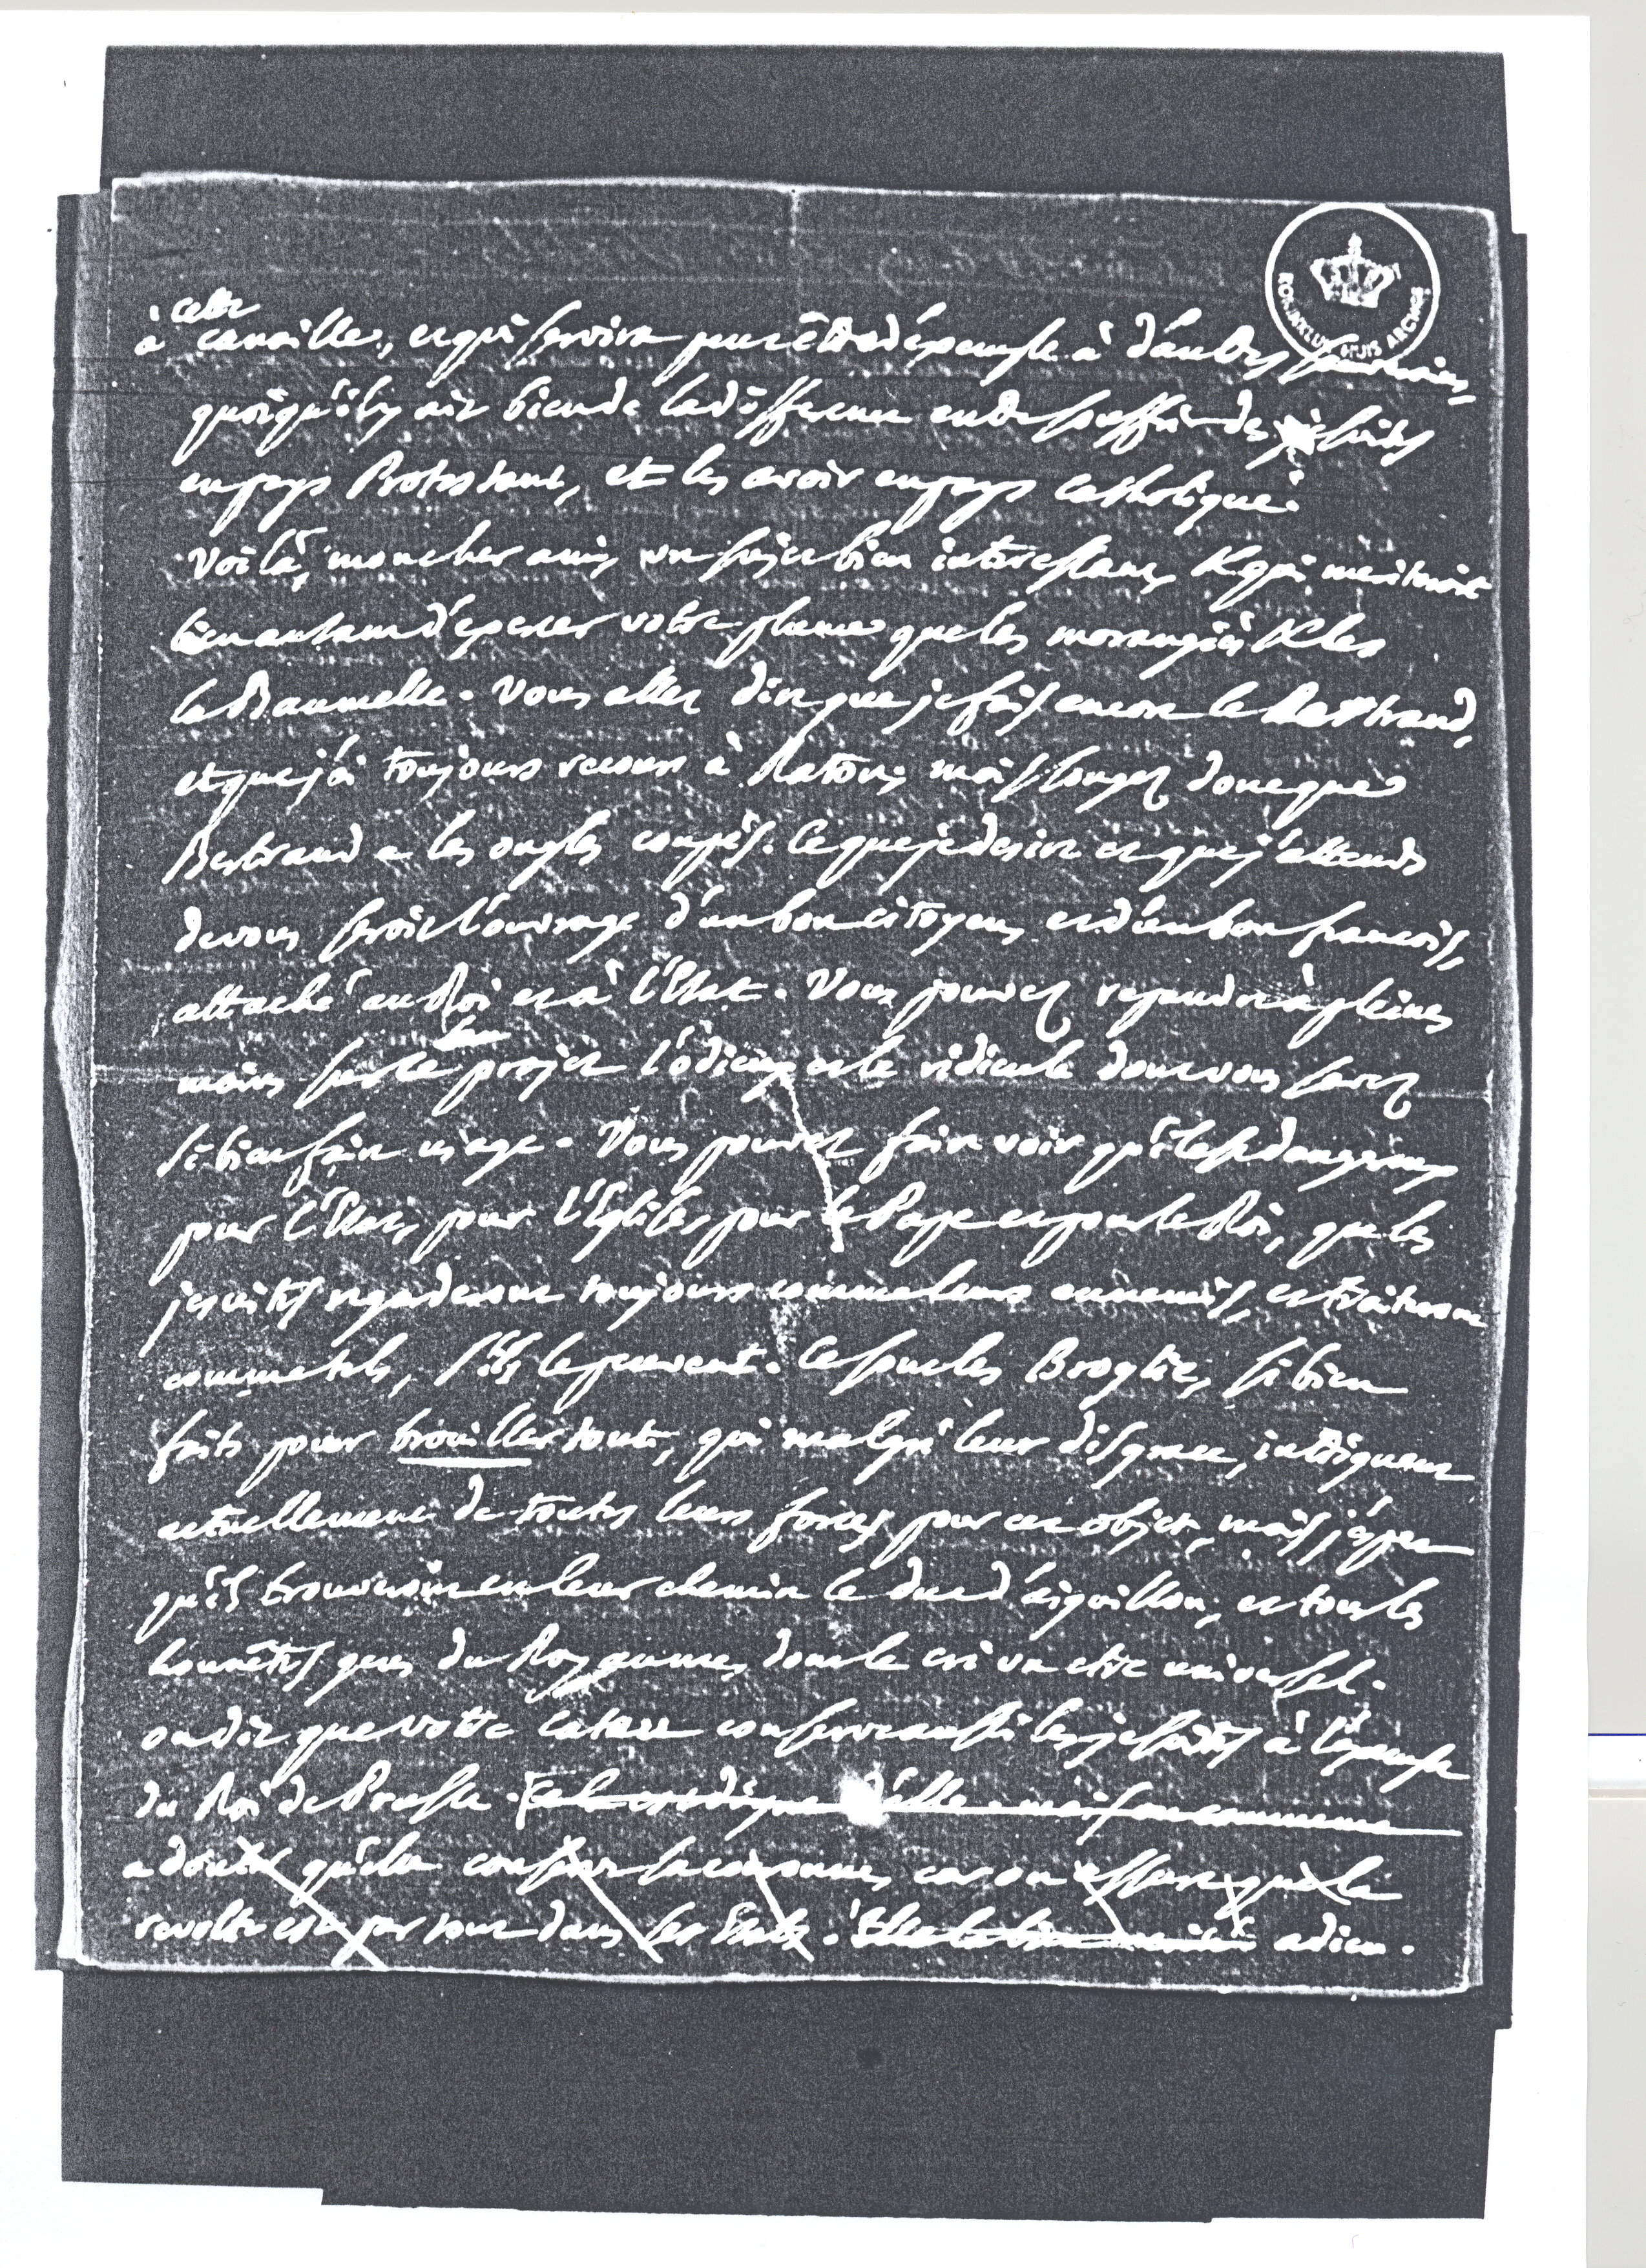 à cette canaille, et qui servira peut être d'exemple à d'autres souverains,
quoiqu'il y ait bien de la différence entre souffrir des jésuites
en pays Protestant, et les avoir en pays catholique.
Voilà, mon cher ami, un sujet bien interessant, & qui meriteroit
bien autant d'exercer votre plume que les morangiés & les
la Baumelle. Vous allez dire que je fais encore le Bertrand,
et que j'ai toujours recours à Raton; mais songez donc que
Bertrand a les ongles coupés. Ce que je desire et que j'attends
de vous seroit l'ouvrage d'un bon citoyen, et d'un bon françois,
attaché au Roi et à l'Etat. Vous pouvez repandre à pleines
mains sur ce beau projet l'odieux et le ridicule dont vous savez
si bien faire usage. Vous pouvez faire voir qu'il est dangereux
pour l'Etat, pour l'Eglise, pour le Pape et pour le Roi, que les
jesuites regarderont toujours comme leurs ennemis, et traiteront
comme tels, s'ils le peuvent. Ce sont les Broglie, si bien
faits pour brouiller tout, qui malgré leur disgrace, intriguent
actuellement de toutes leurs forces pour cet objet, mais j'espere
qu'ils trouveront en leur chemin le duc d'aiguillon, et tous les
honnêtes gens du Royaume, dont le cri va etre universel.
on dit que votre Catau conserve aussi les jesuites à l'exemple
du Roi de Prusse.
a douter qu'elle conserve sa couronne, car on assure que la
revolte est par tout dans ses Etats. adieu.
KONINKLIJK HUIS ARCHIEF